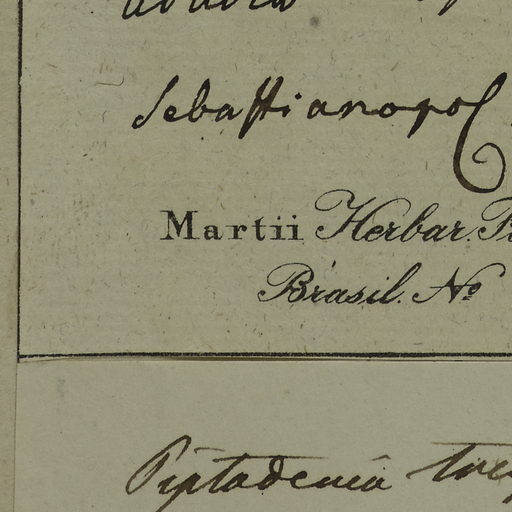 Sebastianopol
Martii Herbar.
Brasil. No
Piptadenia